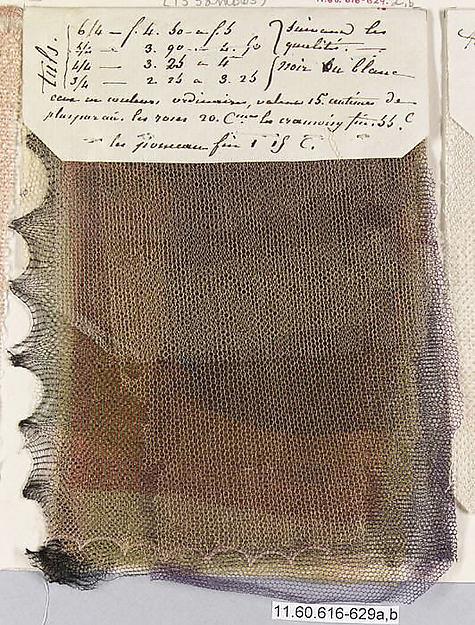 (15 Samples)
11.60.616-629a,b
tuls.
6/4 — f. 4. 50 a f. 5 suivant les
5/4 — 3. 90 — 4. 50 qualité.
4/4 — 3. 25 a 4 noir ou blanc
3/4 — 2. 25 a 3. 25
ceux en couleurs ordinaires, valent 15. centimes de
plus par au. les roses 20. C.mes les cramoisy 55. C
les ponceau fin 1 15 C.
11.60.616-629a,b